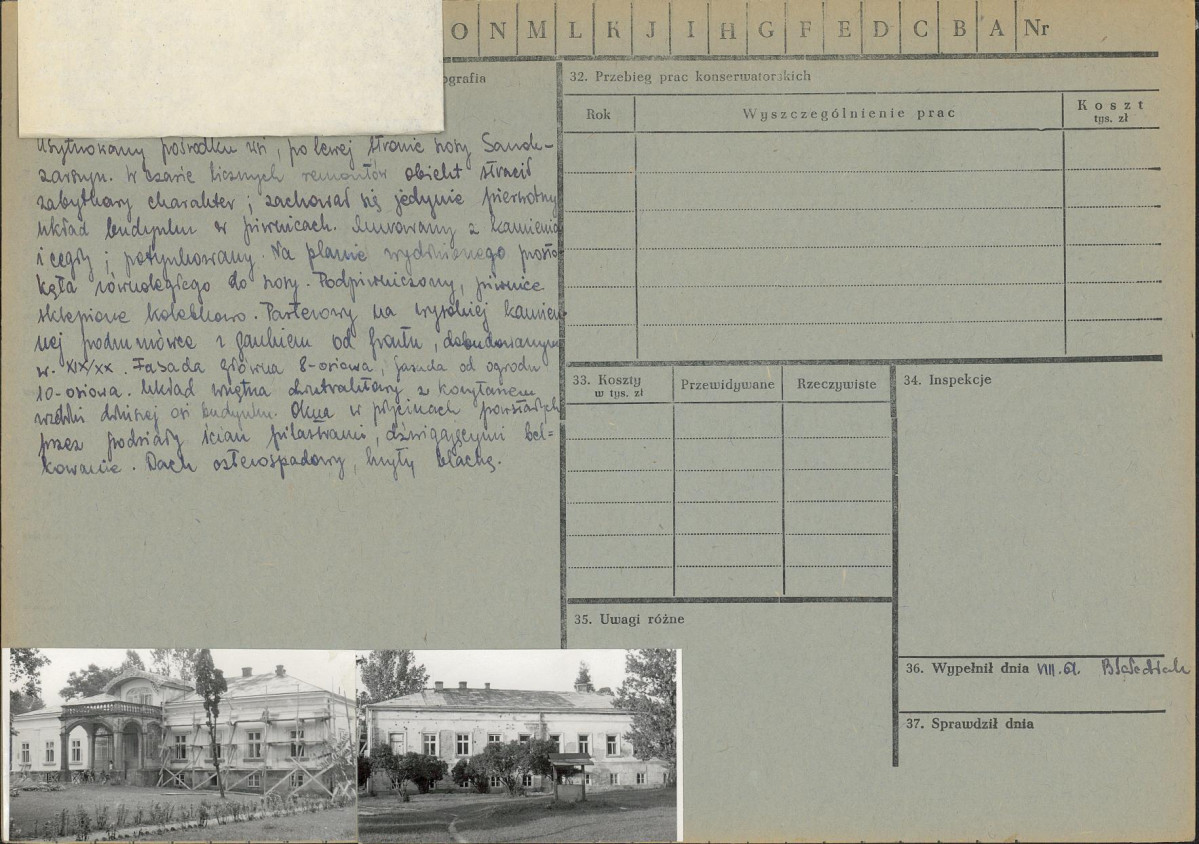 O N M L K J I H G F E D C B A Nr
ografia
Usytuowany pośrodku wsi, po lewej stronie szosy Sando-
zarszyn. W czasie licznych remontów obiekt stracił
zabytkowy charakter; zachował się jedynie pierwotny
układ budynku w piwnicach. Murowany z kamienia
i cegły; potynkowany. Na planie wydłużonego prosto
kąta równoległego do szosy. Podpiwniczony, piwnice
sklepione kolebkowo. Parterowy na wysokiej kamien
nej podmurówce z gankiem od frontu, dobudowanym
w. XIX/XX. Fasada główna 8-osiowa, fasada od ogrodu
10-osiowa. Układ wnętrz dwutraktowy z korytarzem
wzdłuż dłuższej osi budynku. Okna w płycinach powstałych
przez podziały ścian pilastrami, dźwigającymi bel=
kowanie. Dach czterospadowy, kryty blachą.
32. Przebieg prac konserwatorskich
Rok Wyszczególnienie prac Koszt
tys. zł
33. Koszty
w tys. zł
Przewidywane Rzeczywiste
34. Inspekcje
35. Uwagi różne
36. Wypełnił dnia VIII.61.
37. Sprawdził dnia